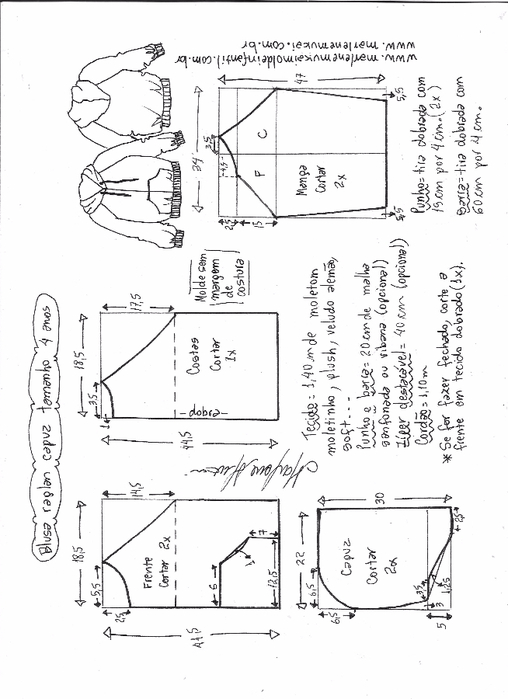 Blusa raglan capuz tamanho 4 anos
18,5
5,5
25
14,5
Frente
Cortar 2x
41,5
6
7
12,5
18,5
3,5
1
17,5
Costas
Cortar
1x
dobra
44,5
Molde sem
margem
de
costura
34
3,5
4,5
25
15
F
C
Manga
Cortar
2x
47
5,5
5,5
www.marlenemukaimoldeinfantil.com.br
www.marlenemukai.com.br
22
6,5
6,5
Capuz
Cortar
2x
30
25
3,5
1,25
3
5
Tecido = 1,40 m de moletom
moletinho, plush, veludo alemão,
soft...
Punho e barra = 20 cm de malha
sanfonada ou ribana (opcional)
Zíper destacável = 40 cm (opcional)
Cordão = 1,10m
* Se for fazer fechado, corte a
frente em tecido dobrado (1x).
Punho = tira dobrada com
15 cm por 4 cm. (2x)
Barra = tira dobrada com
60 cm por 4 cm.